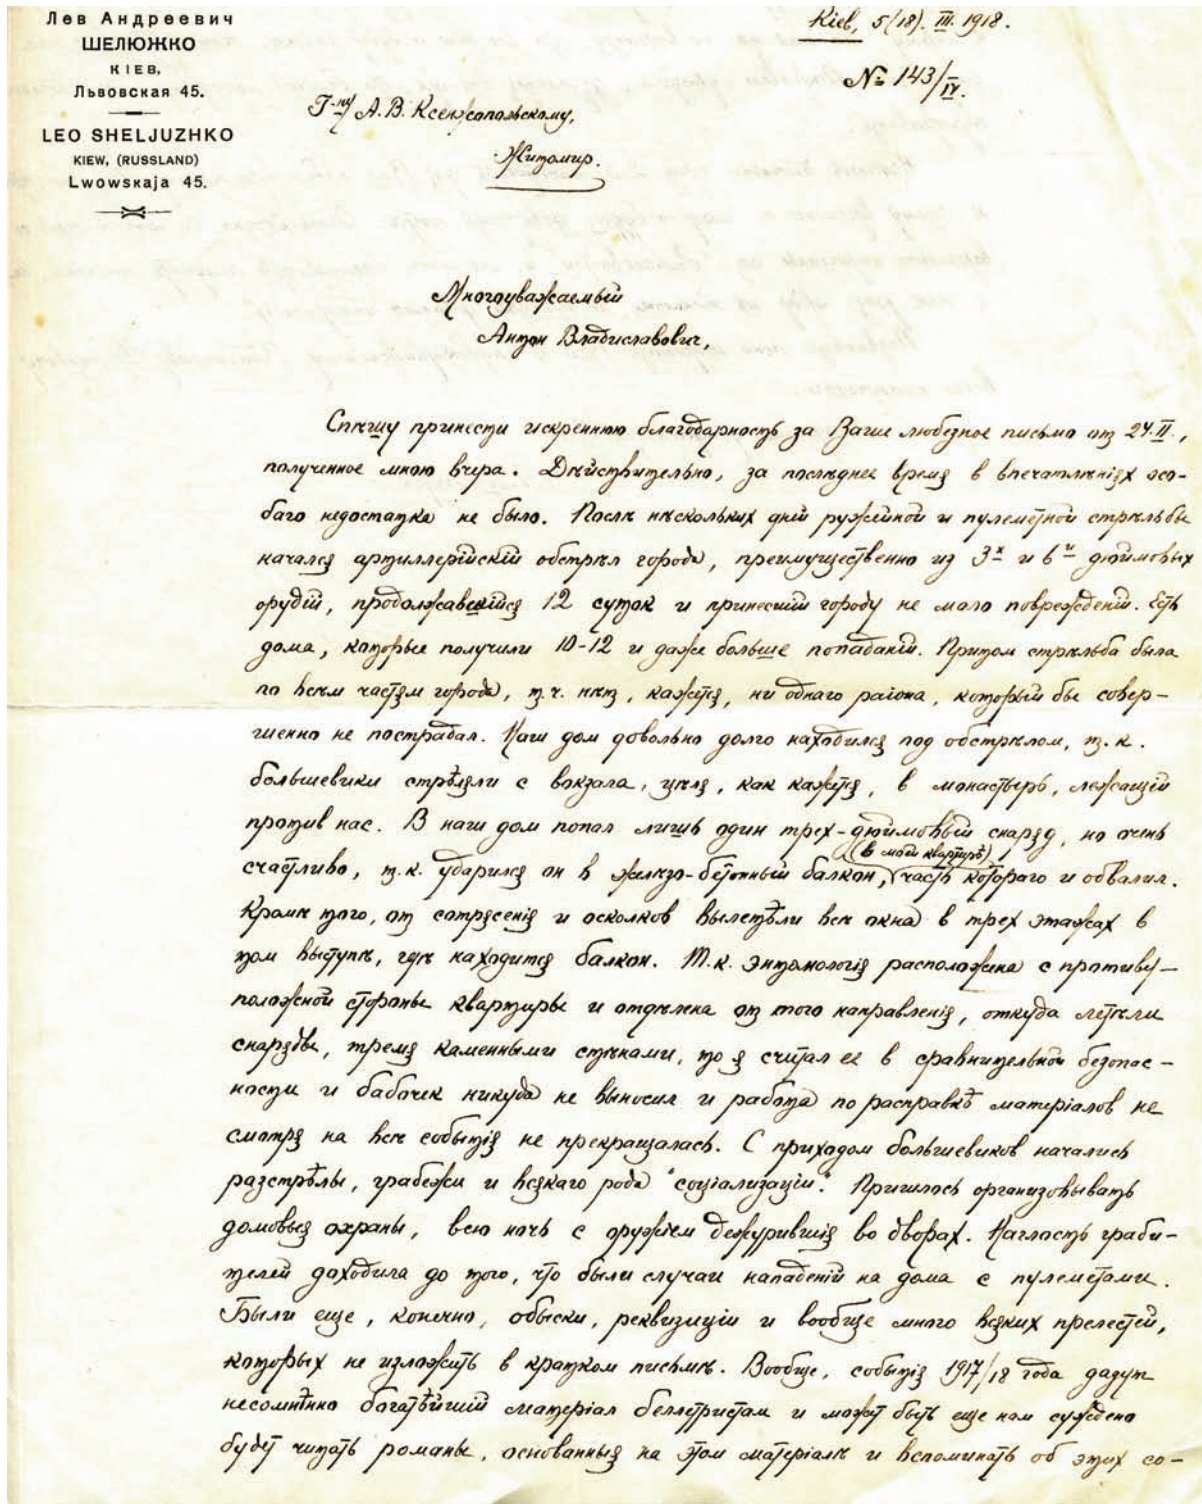 Лев Андреевич
ШЕЛЮЖКО
КІЕВ,
Львовская 45.
LEO SHELJUZHKO
KIEW, (RUSSLAND)
Lwowskaja 45.
Кіев, 5(18). III. 1918.
№ 143/IV.
Г-ну А. В. Ксенжопольскому,
Житомир.
Многоуважаемый
Антон Владиславович,
Спѣшу принести искреннюю благодарность за Ваше любезное письмо от 24.II.,
полученное мною вчера. Дѣйствительно, за послѣднее время в впечатлѣніях осо-
баго недостатка не было. Послѣ нѣскольких дней ружейной и пулеметной стрѣльбы
начался артиллерійскій обстрѣл города, преимущественно из 3х и 6и дюймовых
орудій, продолжавшійся 12 суток и принесшій городу не мало поврежденій. Есть
дома, которые получили 10-12 и даже больше попаданій. Притом стрѣльба была
по всѣм частям города, т.ч. нѣт, кажется, ни однаго раіона, который бы совер-
шенно не пострадал. Наш дом довольно долго находился под обстрѣлом, т.к.
большевики стрѣляли с вокзала, цѣля, как кажется, в монастырь, лежащій
против нас. В наш дом попал лишь один трех-дюймовый снаряд, но очень
счастливо, т.к. ударился он в желѣзо-бетонный балкон, (в моей квартирѣ) часть котораго и обвалил.
Кромѣ того, от сотрясенія и осколков вылетѣли всѣ окна в трех этажах в
том выступѣ, гдѣ находится балкон. Т.к. энтомологія расположена с противу-
положной стороны квартиры и отдѣлена от того направленія, откуда летѣли
снаряды, тремя каменными стѣнами, то я считал ее в сравнительной безопас-
ности и бабочек никуда не выносил и работа по расправкѣ матеріалов не
смотря на всѣ событія не прекращалась. С приходом большевиков начались
разстрѣлы, грабежи и всякаго рода "соціализаціи". Пришлось организовывать
домовыя охраны, всю ночь с оружіем дежурившія во дворах. Наглость граби-
телей доходила до того, что были случаи нападеній на дома с пулеметами.
Были еще, конечно, обыски, реквизиціи и вообще много всяких прелестей,
которых не изложить в кратком письмѣ. Вообще, событія 1917/18 года дадут
несомнѣнно богатѣйшій матеріал беллетристам и может быть еще нам суждено
будет читать романы, основанныя на этом матеріалѣ и вспоминать об этих со-